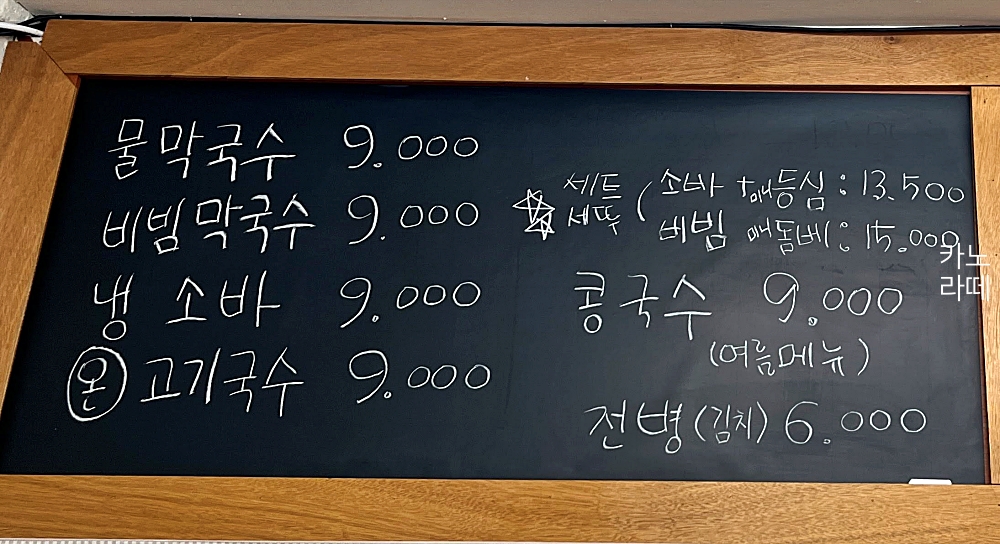 물막국수 9.000
비빔막국수 9.000
냉 소바 9.000
온 고기국수 9.000
세트 ( 소바 + 매등심 : 13.500
세뚜 비빔 매돔베 : 15.000
콩국수 9.000
(여름메뉴)
전병 (김치) 6.000
카노
라떼